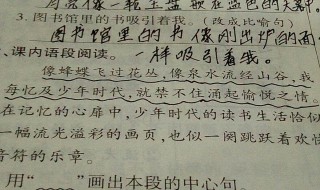 月亮像一轮玉盘 在蓝色的天
3. 图书馆里的书吸引着我。(改成比喻句)
图书馆里的书像刚出炉的面
、课内语段阅读。 一样吸引着我。
像蜂蝶飞过花丛,像泉水流经山谷,我
每忆及少年时代,就禁不住涌起愉悦之情。
在记忆的心扉中,少年时代的读书生活恰似
一幅流光溢彩的画页,也似一阕跳跃着欢快
音符的乐章。
用“ ”画出本段的中心句。